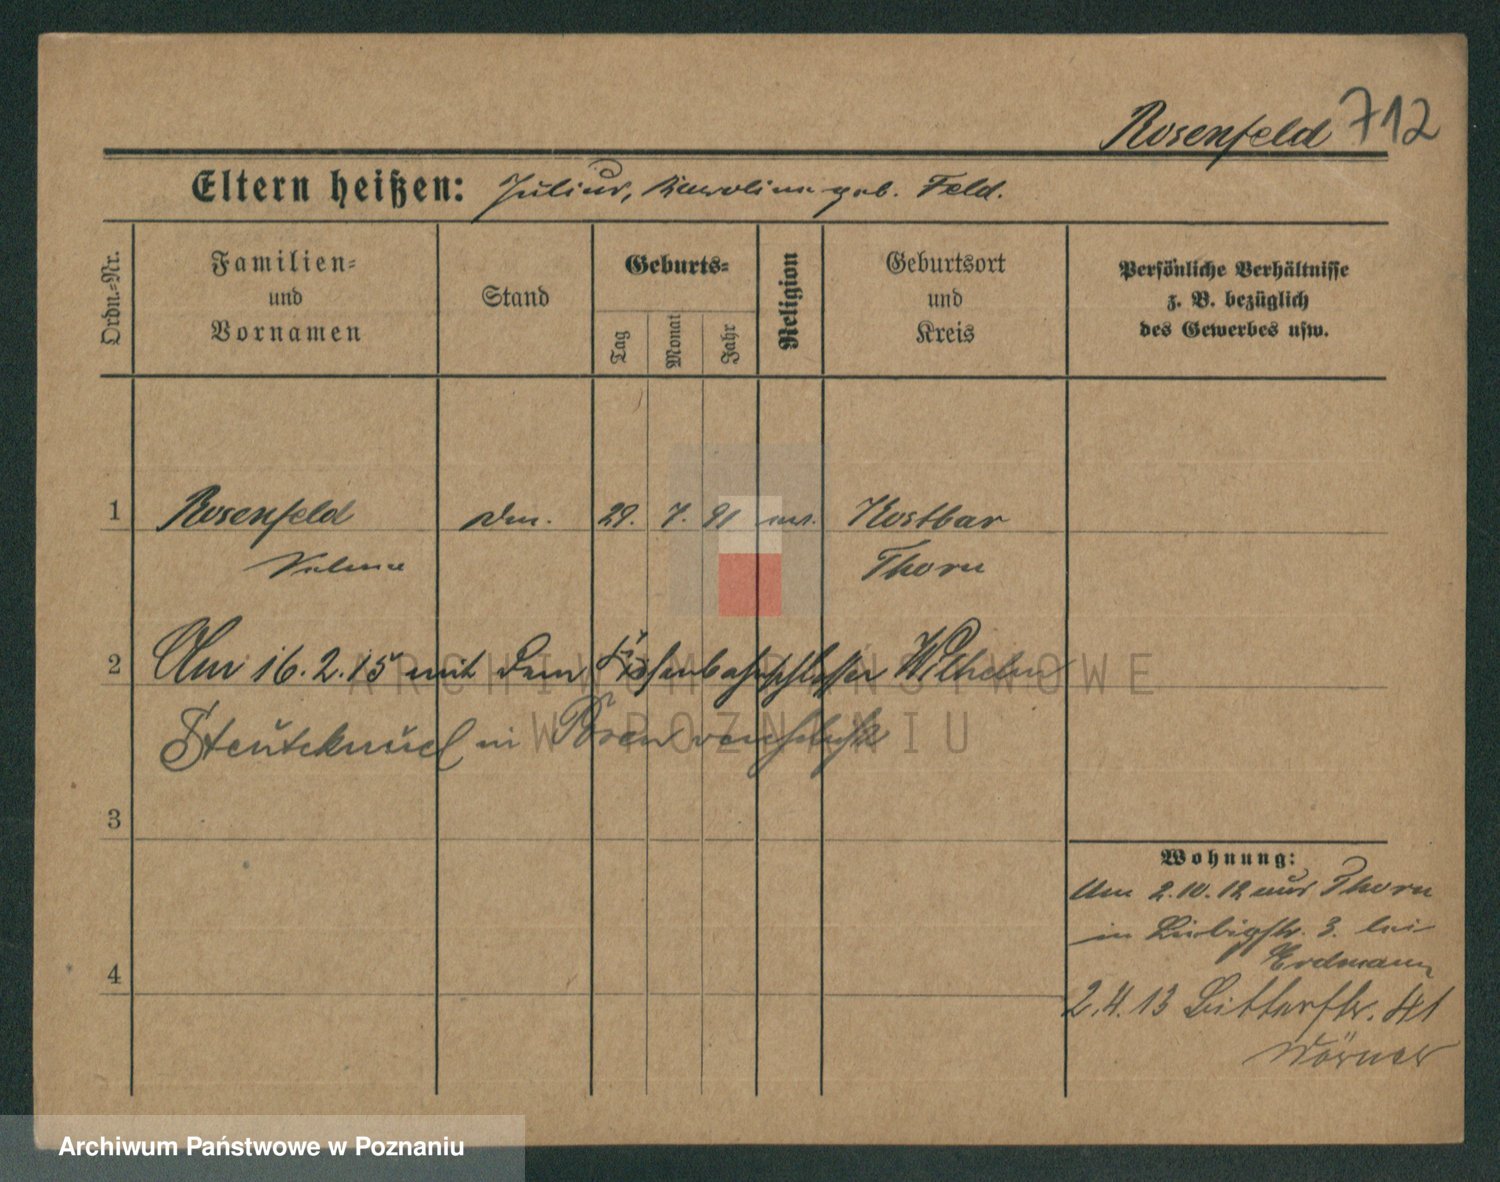 Rosenfeld 712
Eltern heißen: Julius, Karolina geb. Feld.
Ordn.-Nr.
Familien- und Vornamen
Stand
Geburts-
Tag
Monat
Jahr
Religion
Geburtsort und Kreis
Persönliche Verhältnisse
z. B. bezüglich
des Gewerbes usw.
1 Rosenfeld 29. 7. 91 Kostbar
Thorn
2 Am 16.2.15 mit dem Eisenbahnschlosser Wilhelm
in Posen verehelicht
3
Wohnung:
Am 2.10.12 aus Thorn
in 3. bei
Erdmann
4
2.4.13 Bitterstr. 41
Wörner
ARCHIWUM PAŃSTWOWE
W POZNANIU
Archiwum Państwowe w Poznaniu